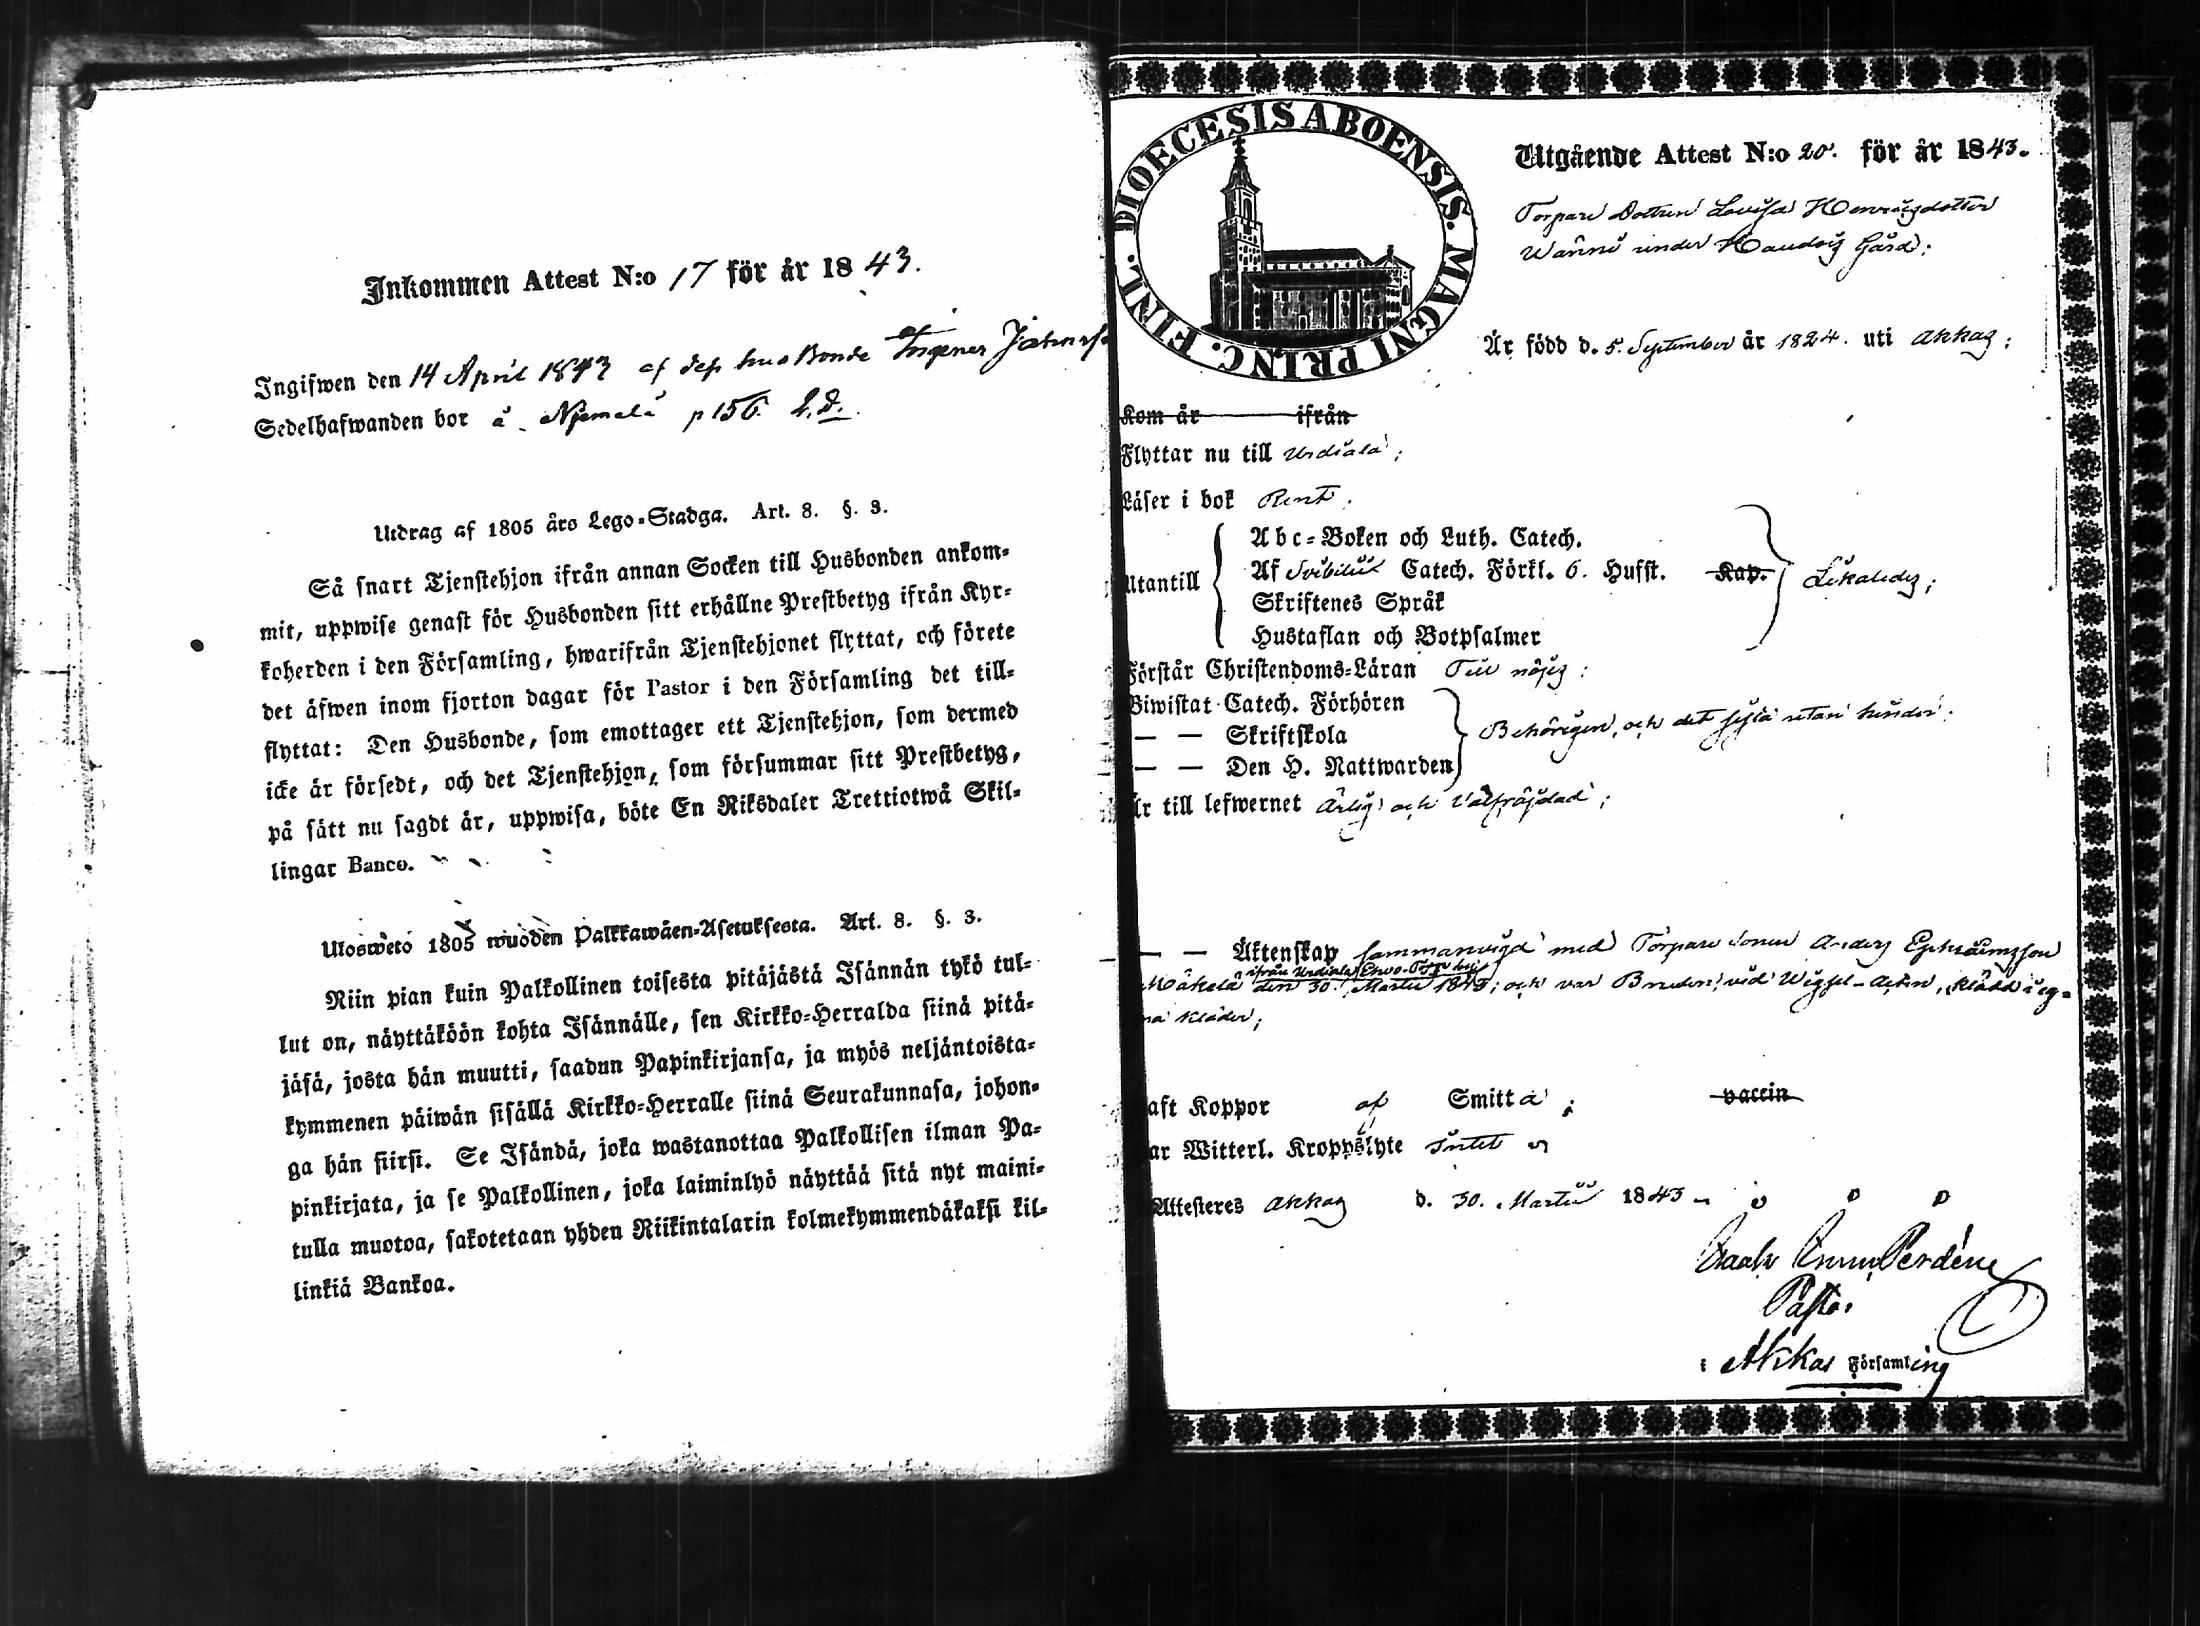 Inkommen Attest N:o 17 för år 1843.
Ingifwen den 14 April 1843 af
Sedelhafwanden bor å p 156.
Utdrag af 1805 års Lego-Stadga. Art. 8. §. 3.
Så snart Tjenstehjon ifrån annan Socken till Husbonden ankom-
mit, uppwise genast för Husbonden sitt erhållne Prestbetyg ifrån Kyr-
koherden i den Församling, hwarifrån Tjenstehjonet flyttat, och förete
det äfwen inom fjorton dagar för Pastor i den Församling det till-
flyttat: Den Husbonde, som emottager ett Tjenstehjon, som dermed
icke är försedt, och det Tjenstehjon, som försummar sitt Prestbetyg,
på sätt nu sagdt är, uppwisa, böte En Riksdaler Trettiotwå Skil-
lingar Banco.
Ulosweto 1805 wuoden Palkkawäen-Asetuksesta. Art. 8. §. 3.
Niin pian kuin Palkollinen toisesta pitäjästä Isännän tykö tul-
lut on, näyttäköön kohta Isännälle, sen Kirkko-Herralda siinä pitä-
jäsä, josta hän muutti, saadun Papinkirjansa, ja myös neljäntoista-
kymmenen päiwän sisällä Kirkko-Herralle siinä Seurakunnasa, johon-
ga hän siirsi. Se Isändä, joka wastanottaa Palkollisen ilman Pa-
pinkirjata, ja se Palkollinen, joka laiminlyö näyttää sitä nyt maini-
tulla muotoa, sakotetaan yhden Riikintalarin kolmekymmendäkaksi kil-
linkiä Bankoa.
DIOECESIS ABOENSIS. MAGNI PRINC. FINL.
Utgående Attest N:o 20. för år 1843.
Torpare Dottren Lovisa Henricsdotter
under Gård;
Är född d. 5. September år 1824. uti Akkas;
Kom år ifrån
Flyttar nu till Urdiala;
Läser i bok Rent.
Abc-Boken och Luth. Catech.
Utantill Af Svebilii Catech. Förkl. 6. Husst. Kap. Likaledes;
Skriftenes Språk
Hustaflan och Botpsalmer
Förstår Christendoms-Läran Till nöjes;
Biwistat Catech. Förhören
— — Skriftskola Behörigen, och det sista utan hinder.
— — Den H. Nattwarden
Är till lefwernet Ärlig och Välfräjdad;
— — Äktenskap sammanvigd med Torpare Sonen Anders Ephraimsson
ifrån Urdiala
Mäkelä den 30. Martii 1843; och var Bruden, vid Wigsel-Acten, klädd i eg-
na kläder;
Haft Koppor af Smitta; vaccin
Har Witterl. Kroppslyte Intet
Attesteres Akkas d. 30. Martii 1843
Pastor
i Akkas Församling